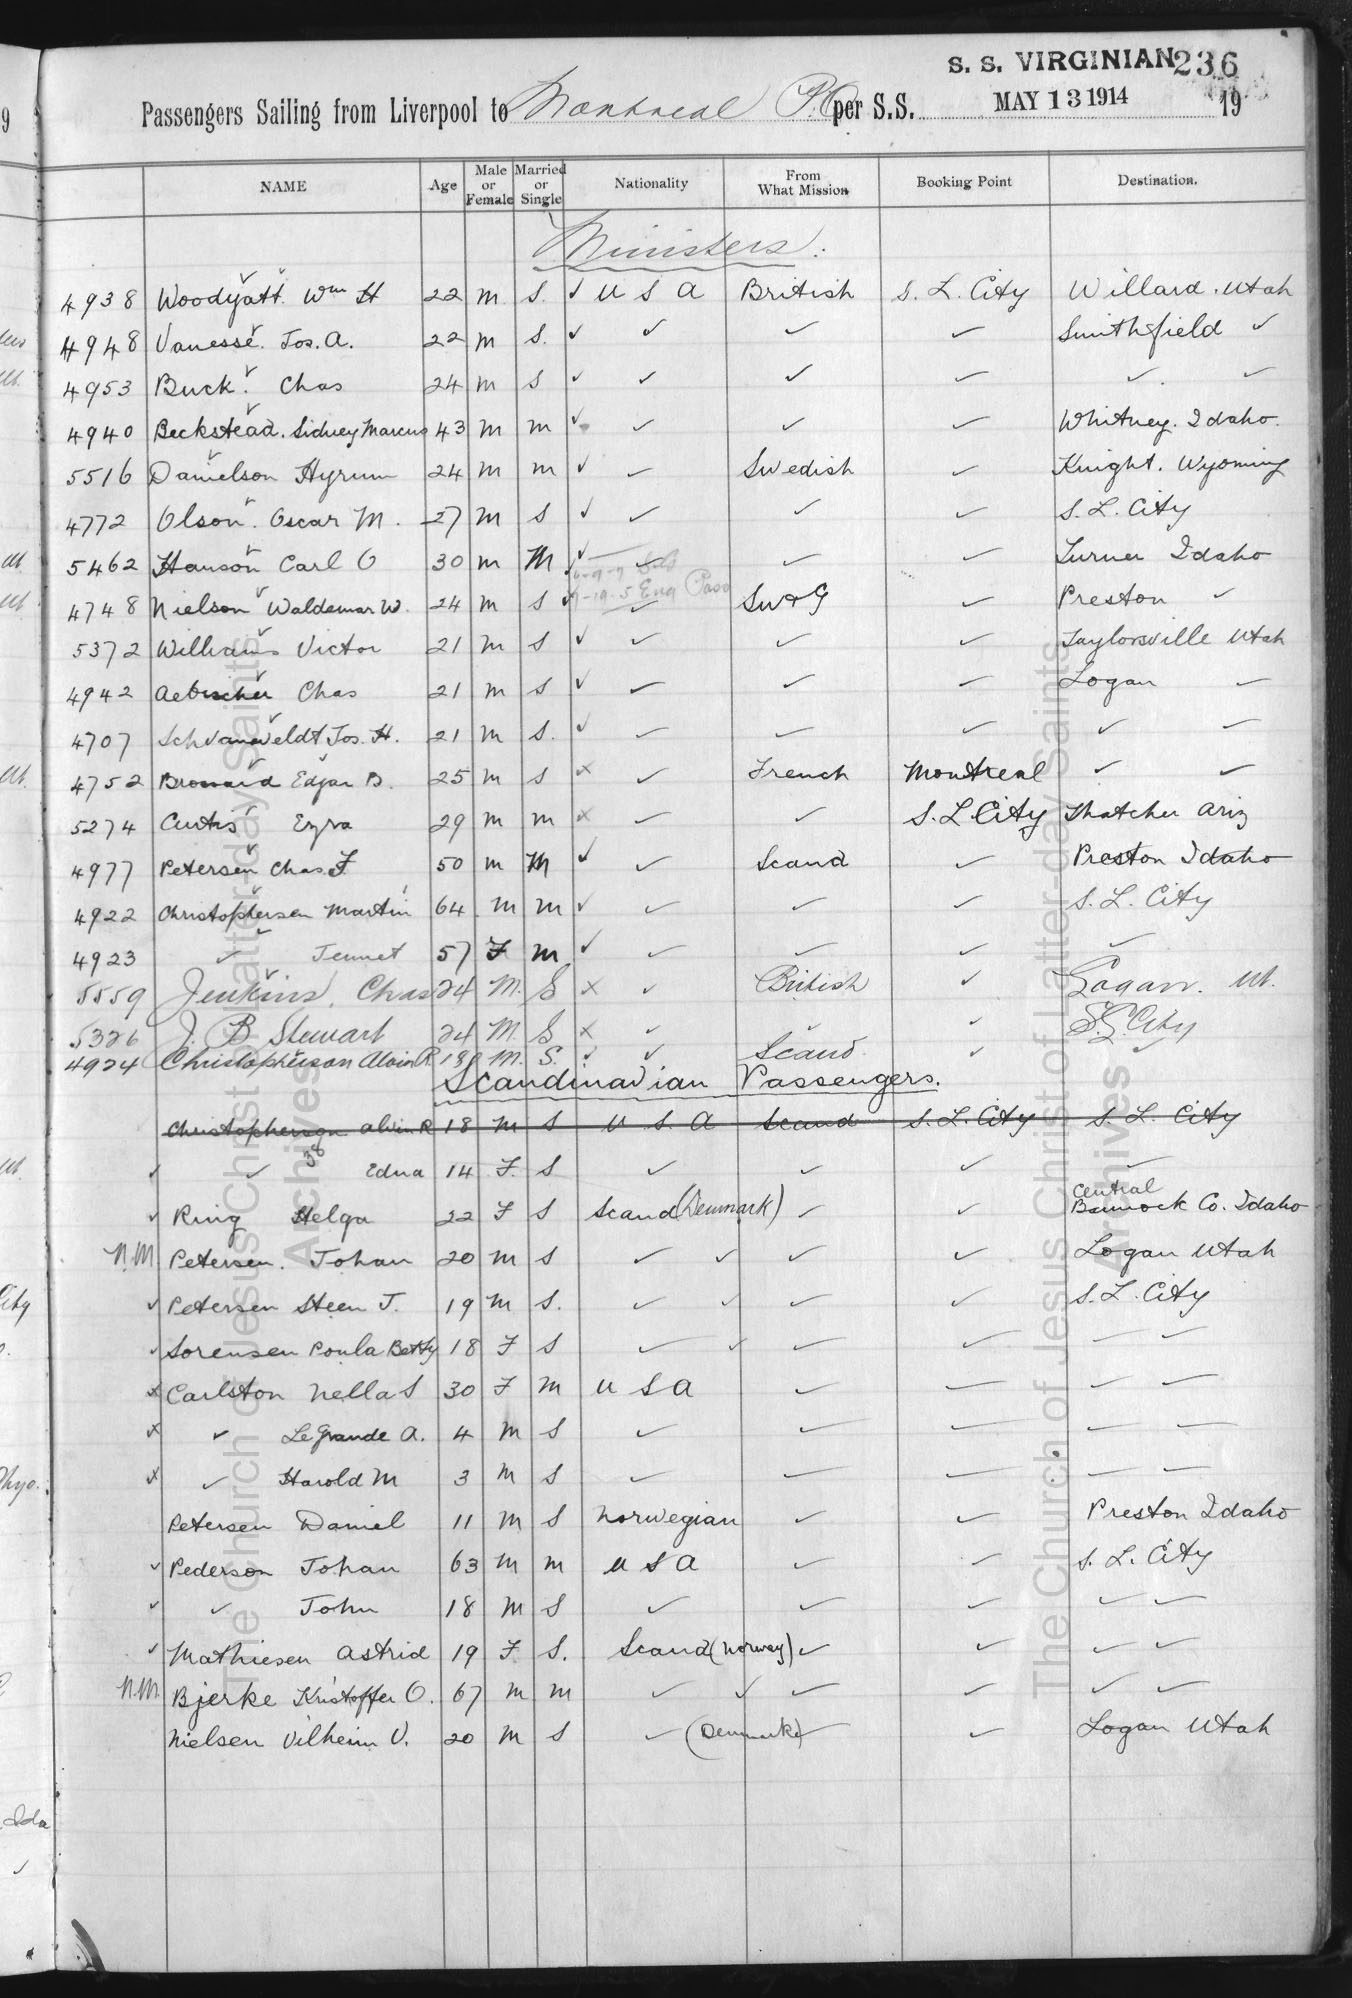 S. S. VIRGINIAN 236
Passengers Sailing from Liverpool to Montreal P.Q. per S.S. MAY 13 1914 19
NAME Age Male or Female Married or Single Nationality From What Mission Booking Point Destination.
Ministers.
4938 Woodyatt. Wm H 22 m S. ✓ U S A British S. L. City Willard. Utah
4948 Vanesse. Jos. A. 22 m S. ✓ ✓ ✓ ✓ Smithfield ✓
4953 Buck. Chas 24 m S ✓ ✓ ✓ ✓ ✓ ✓
4940 Beckstead. Sidney Marcus 43 m m ✓ ✓ ✓ ✓ Whitney. Idaho.
5516 Danielson Hyrum 24 m m ✓ ✓ Swedish ✓ Knight. Wyoming
4772 Olson. Oscar M. 27 m S ✓ ✓ ✓ ✓ S. L. City
5462 Hanson Carl O 30 m M ✓ ✓ ✓ ✓ Turner Idaho
4748 Nielson Waldemar W. 24 m S ✓ ✓ Sw & G ✓ Preston ✓
5372 Williams Victor 21 m S ✓ ✓ ✓ ✓ Taylorsville Utah
4942 Aebischer Chas 21 m S ✓ ✓ ✓ ✓ Logan ✓
4707 Schvaneveldt Jos. H. 21 m S. ✓ ✓ ✓ ✓ ✓ ✓
4752 Brossard Edgar B. 25 m S x ✓ French Montreal ✓ ✓
5274 Curtis Ezra 29 m m x ✓ ✓ S. L. City Thatcher Ariz
4977 Petersen Chas. F 50 m M ✓ ✓ Scand ✓ Preston Idaho
4922 Christophersen Martin 64 m m ✓ ✓ ✓ ✓ S. L. City
4923 ✓ Jennet 57 F m ✓ ✓ ✓ ✓ ✓
5559 Jenkins, Chas 24 M. S x ✓ British ✓ Logan. Ut.
5326 J. B Stewart 24 M. S x ✓ ✓ ✓ S. L. City
4924 Christopherson Alvin R. 18 M. S. ✓ ✓ Scand. ✓ ✓
Scandinavian Passengers.
Christopherson Alvin R 18 m S U. S. A Scand S. L. City S. L. City
✓ ✓ Edna 14 F. S ✓ ✓ ✓ ✓
Central
✓ Ring Helga 22 F S Scand (Denmark) ✓ ✓ Bannock Co. Idaho
N.M Petersen. Johan 20 m S ✓ ✓ ✓ ✓ Logan Utah
✓ Petersen Steen J. 19 m S. ✓ ✓ ✓ ✓ S. L. City
✓ Sorensen Poula Betty 18 F S ✓ ✓ ✓ ✓ ✓ ✓
x Carlston Nella S 30 F m U S A ✓ ✓ ✓ ✓
x ✓ Le Grande A. 4 m S ✓ ✓ ✓ ✓ ✓
x ✓ Harold M 3 m S ✓ ✓ ✓ ✓ ✓
Petersen Daniel 11 m S Norwegian ✓ ✓ Preston Idaho
✓ Pederson Johan 63 m m U S A ✓ ✓ S. L. City
✓ ✓ John 18 m S ✓ ✓ ✓ ✓ ✓
✓ Mathiesen Astrid 19 F. S. Scand (Norway) ✓ ✓ ✓ ✓
N.M. Bjerke Kristoffer O. 67 m m ✓ ✓ ✓ ✓ ✓ ✓
Nielsen Vilhelm V. 20 m S ✓ (Denmark) ✓ ✓ Logan Utah
The Church of Jesus Christ of Latter-day Saints
Archives
The Church of Jesus Christ of Latter-day Saints
Archives